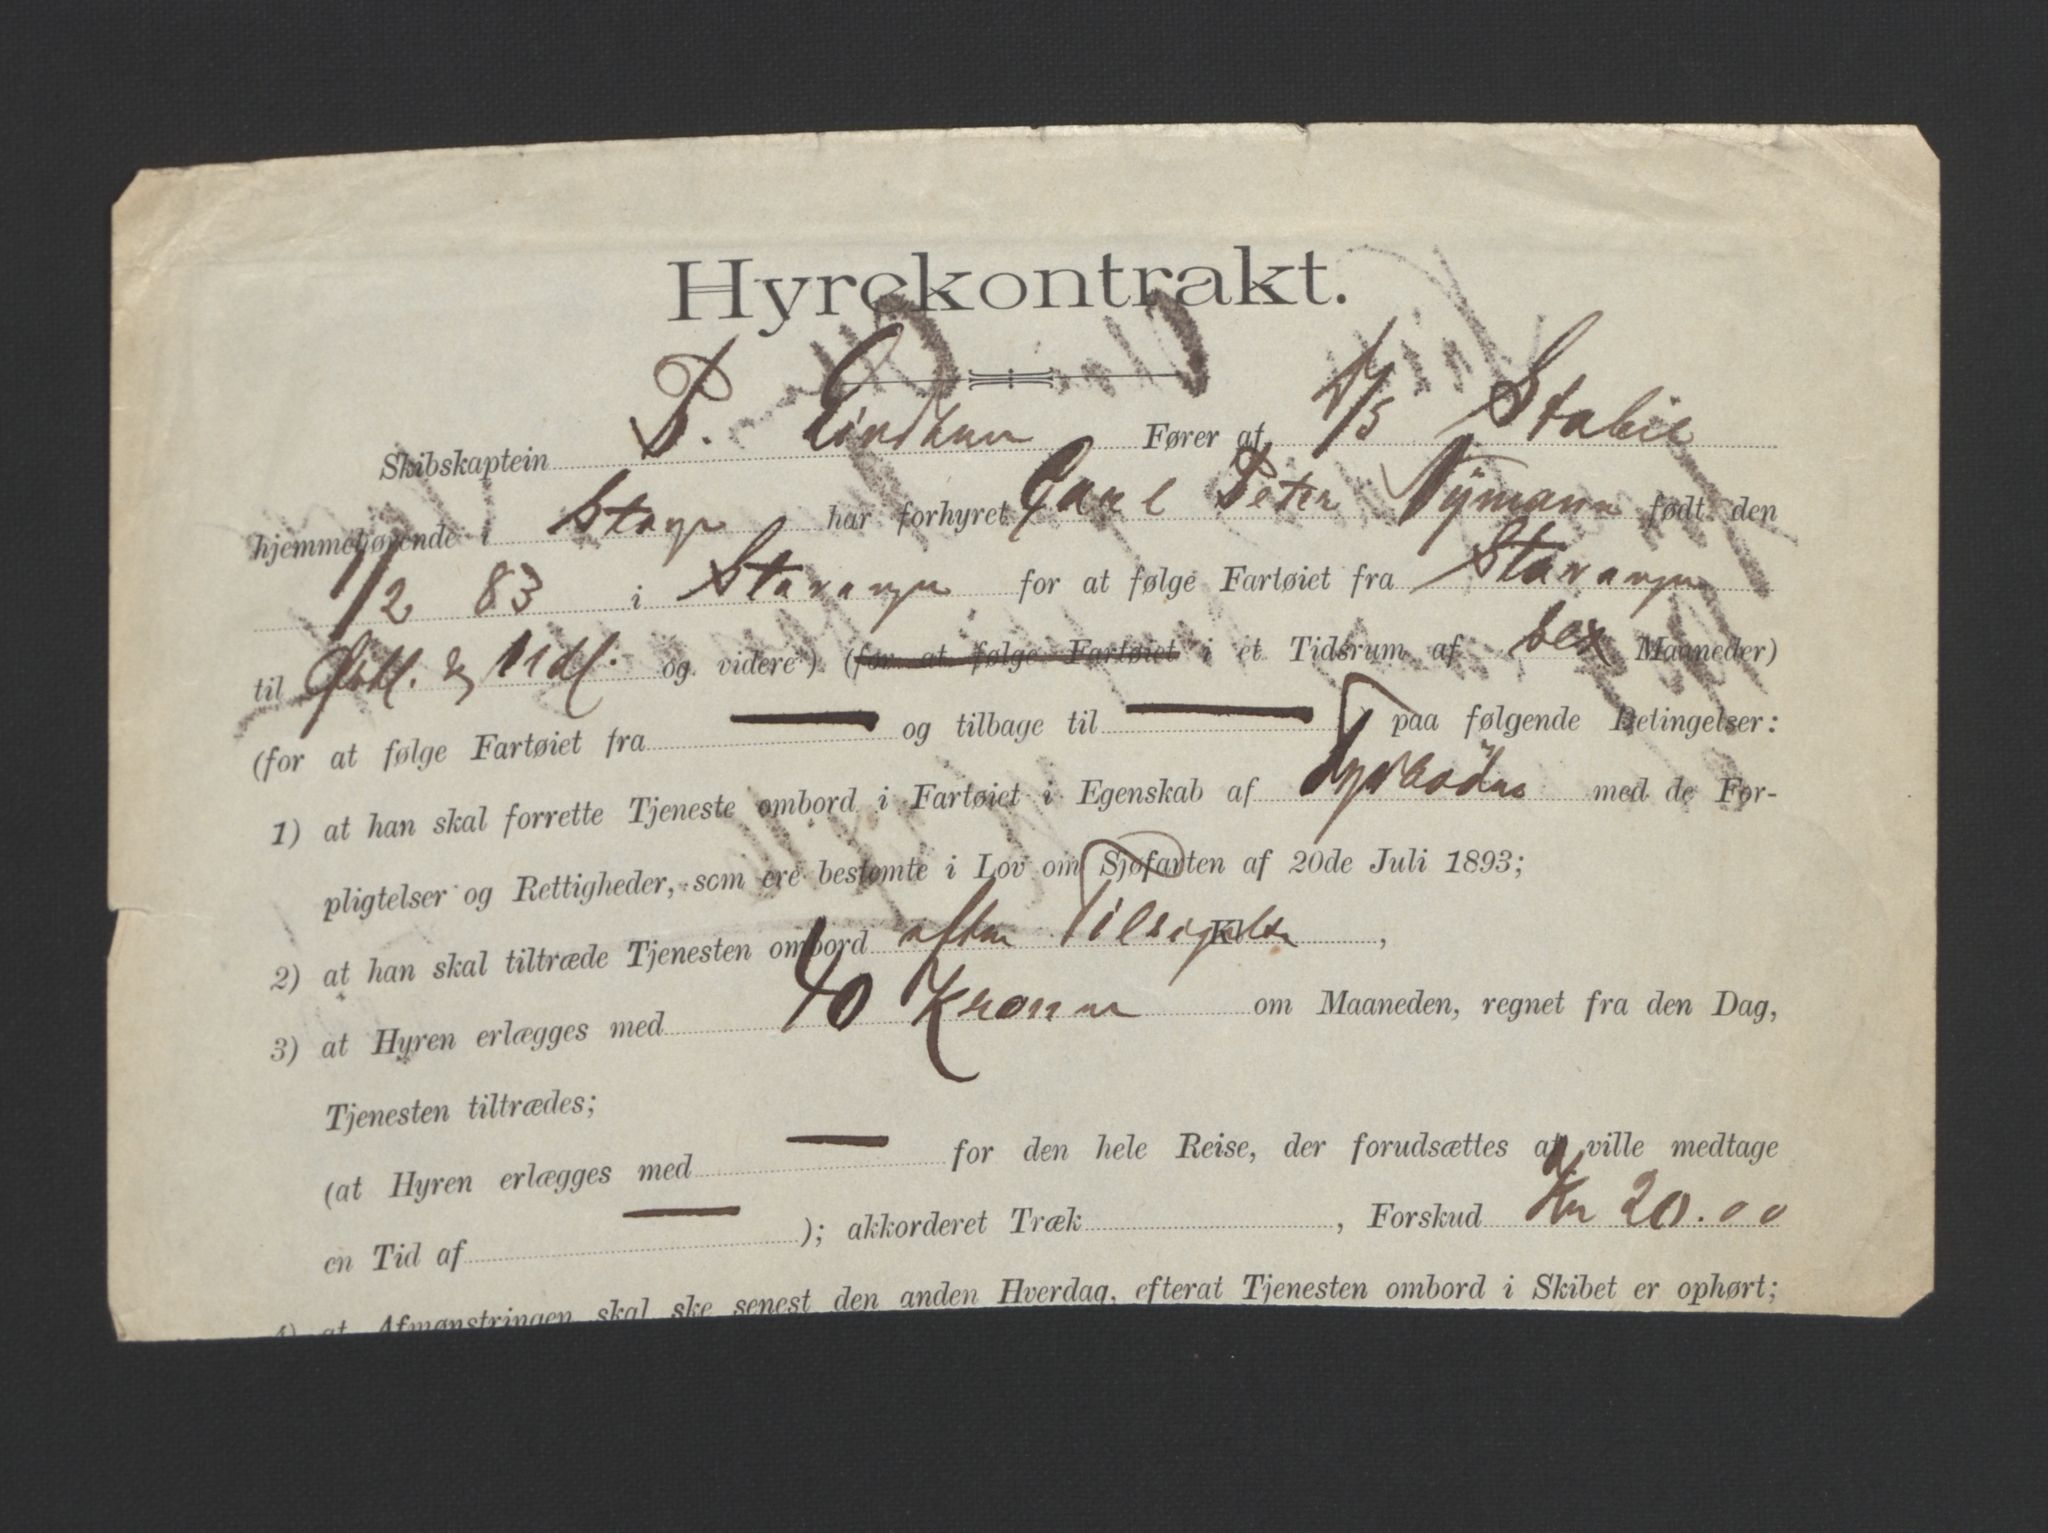 Hyrekontrakt.
Skibskaptein P. Lindhun Fører af S/S Stabil
hjemmehørende i Stavgr har forhyret Carl Peter Nÿmann født den
1/2 83 i Stavangr for at følge Fartøiet fra Stavangr
til Indl. & Udl. og videre) (for at følge Fartøiet i et Tidsrum af sex Maaneder)
(for at følge Fartøiet fra — og tilbage til — ) paa følgende Betingelser:
1) at han skal forrette Tjeneste ombord i Fartøiet i Egenskab af Fyrböder med de For-
pligtelser og Rettigheder, som ere bestemte i Lov om Sjøfarten af 20de Juli 1893;
2) at han skal tiltræde Tjenesten ombord efter Tilsigelse Kl. ,
3) at Hyren erlægges med 40 Kroner om Maaneden, regnet fra den Dag,
Tjenesten tiltrædes;
(at Hyren erlægges med — for den hele Reise, der forudsættes at ville medtage
en Tid af — ); akkorderet Træk , Forskud Kr 20.00
4) at Afmønstringen skal ske senest den anden Hverdag, efterat Tjenesten ombord i Skibet er ophørt;